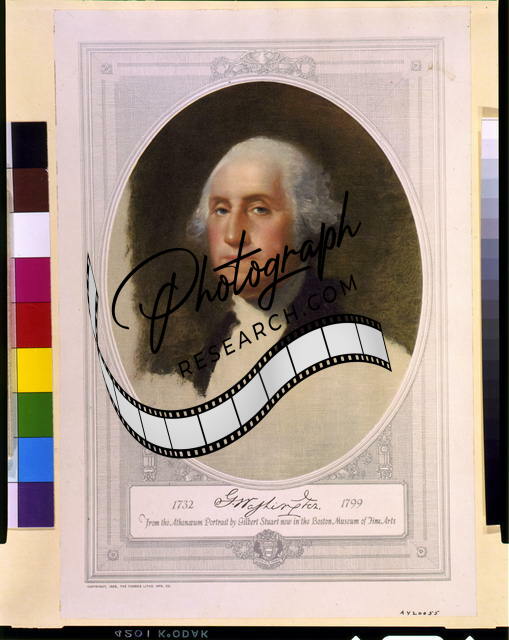 Photograph
RESEARCH.COM
1732 G Washington. 1799
From the Athenæum Portrait by Gilbert Stuart now in the Boston Museum of Fine Arts
COPYRIGHT, THE FORBES LITHO. MFG. CO.
4201 KODAK